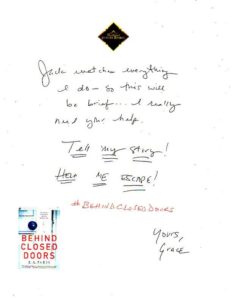 Jack watches everything
I do – so this will
be brief... I really
need your help.
Tell my story!
HELP ME ESCAPE!
#BEHINDCLOSEDDOORS
YOURS,
GRACE
BEHIND
CLOSED
DOORS